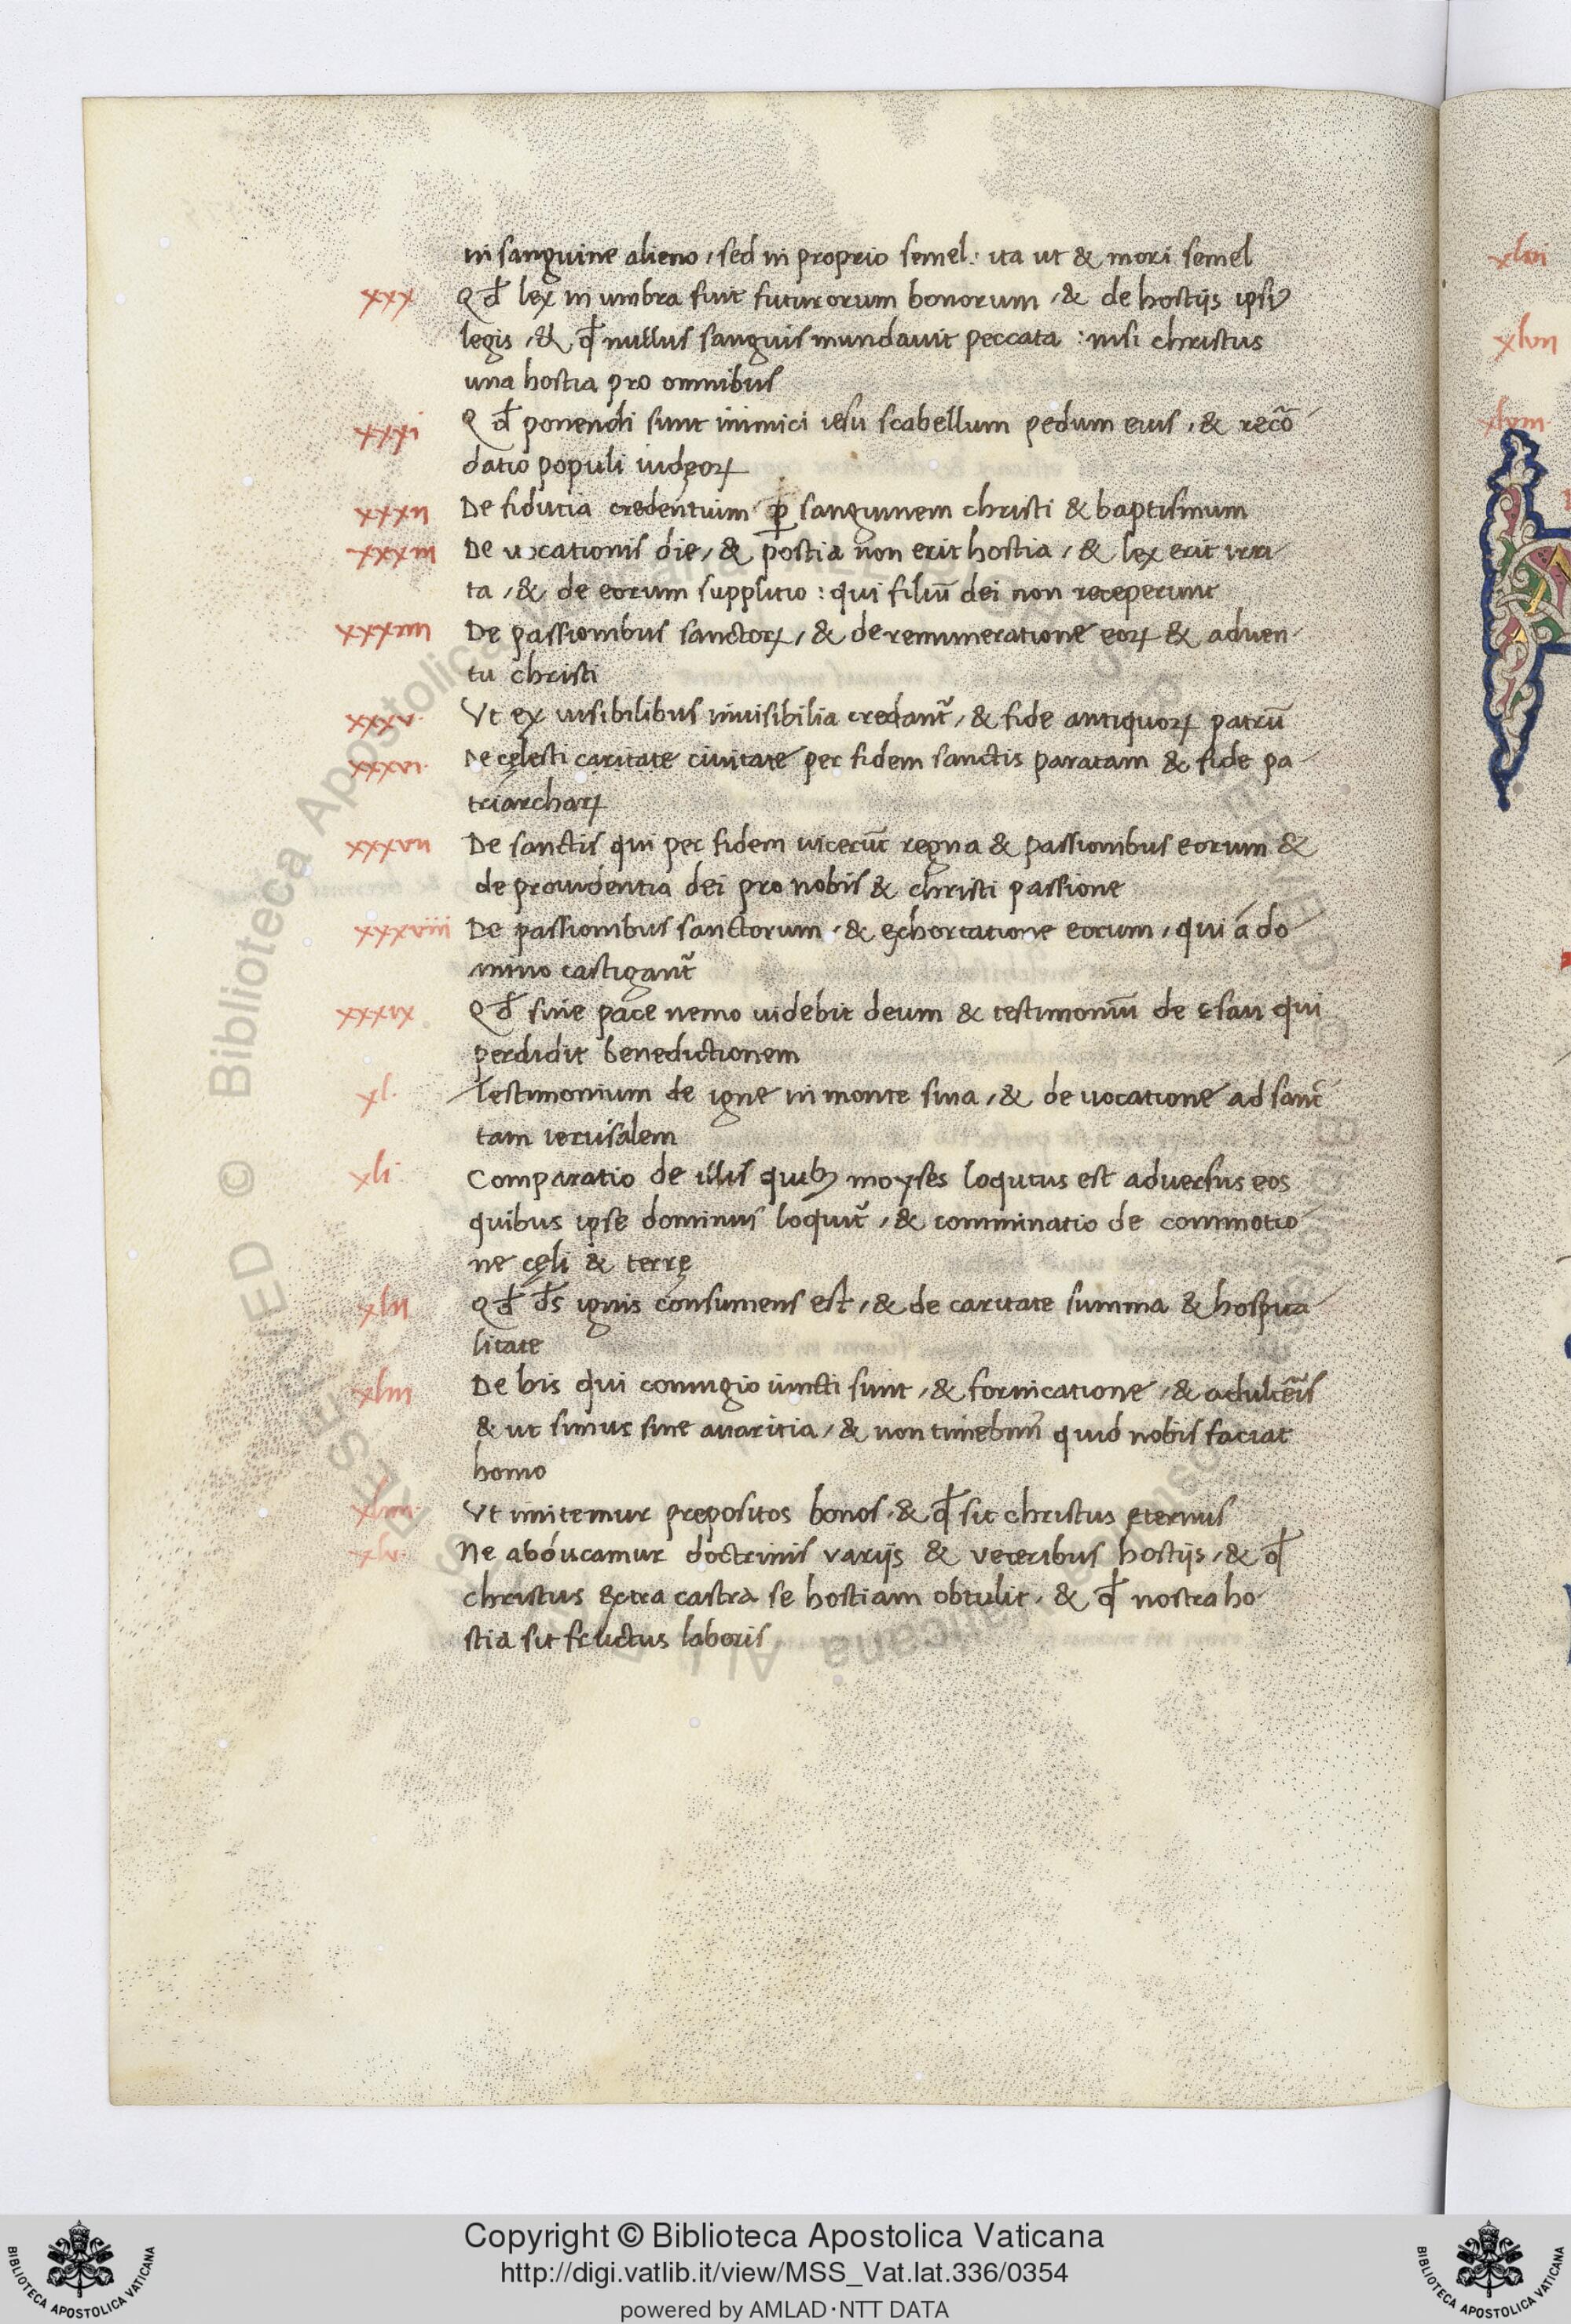 in sanguine alieno, sed in proprio semel: ita ut & mori semel
xxx Qd̄ lex in umbra fuit futurorum bonorum, & de hostijs ipsiꝰ
legis, & qd̄ nullus sanguis mundauit peccata: nisi christus
una hostia pro omnibus
xxxi Qd̄ ponendi sunt inimici iesu scabellum pedum eius, & recō
datio populi iudęoꝝ
xxxii De fiducia credentium ꝑ sanguinem christi & baptismum
xxxiii De vocationis die, & postia non erit hostia, & lex erit irri
ta, & de eorum supplitio: qui filiū dei non receperunt
xxxiiii De passionibus sanctoꝝ, & de remuneratione eoꝝ & aduen
tu christi
xxxv. Ut ex uisibilibus inuisibilia credant᷑, & fide antiquoꝝ patrū
xxxvi. De cęlesti caritate ciuitate per fidem sanctis paratam & fide pa
triarchaꝝ
xxxvii De sanctis qui per fidem uicerūt regna & passionibus eorum &
de prouidentia dei pro nobis & christi passione
xxxviii De passionibus sanctorum, & exhortatione eorum, qui á do
mino castigant᷑
xxxix Qd̄ sine pace nemo uidebit deum & testimoniū de esau qui
perdidit benedictionem
xl. Testimonium de igne in monte sina, & de uocatione ad sanc
tam ierusalem
xli. Comparatio de illis quibꝫ moyses loqutus est aduersus eos
quibus ipse dominus loquit᷑, & comminatio de commotio
ne cęli & terrę
xlii Qd̄ d̄s ignis consumens est, & de caritate summa & hospita
litate
xliii De his qui coniugio iuncti sunt, & fornicatione, & adult̄eis
& ut simus sine auaritia, & non timebim᷑ quid nobis faciat
homo
xliiii. Ut imitemur prepositos bonos, & qd̄ sit christus ęternus
xlv. Ne abducamur doctrinis varijs & veteribus hostijs, & qd̄
christus extra castra se hostiam obtulit, & qd̄ nostra ho
stia sit fructus laboris
xlvi
xlvii
xlviii
© Biblioteca Apostolica Vaticana
Copyright © Biblioteca Apostolica Vaticana
http://digi.vatlib.it/view/MSS_Vat.lat.336/0354
powered by AMLAD·NTT DATA
BIBLIOTECA APOSTOLICA VATICANA
BIBLIOTECA APOSTOLICA VATICANA